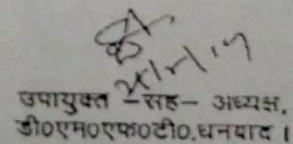 उपायुक्त -सह- अध्यक्ष,
डी०एम०एफ०टी०,धनबाद।